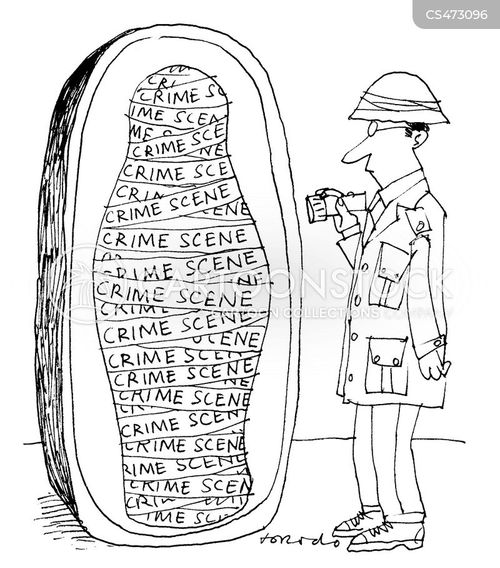 CS473096
CRI
CRIME SC
IME SCEN
ME SCE
CRIME SCE
CRIME SCE
CRIME SCENE
CRIME SCENE
CRIME SCENE
CRIME SCENE
CRIME SCENE
CRIME SCENE
CRIME SCENE
CRIME SCENE
CRIME SCENE
CRIME SCENE
CRIME SCENE
RIME SCENE
CRIME SCEN
CRIM
CRIME SC
CARTOONSTOCK
CARTOON COLLECTIONS